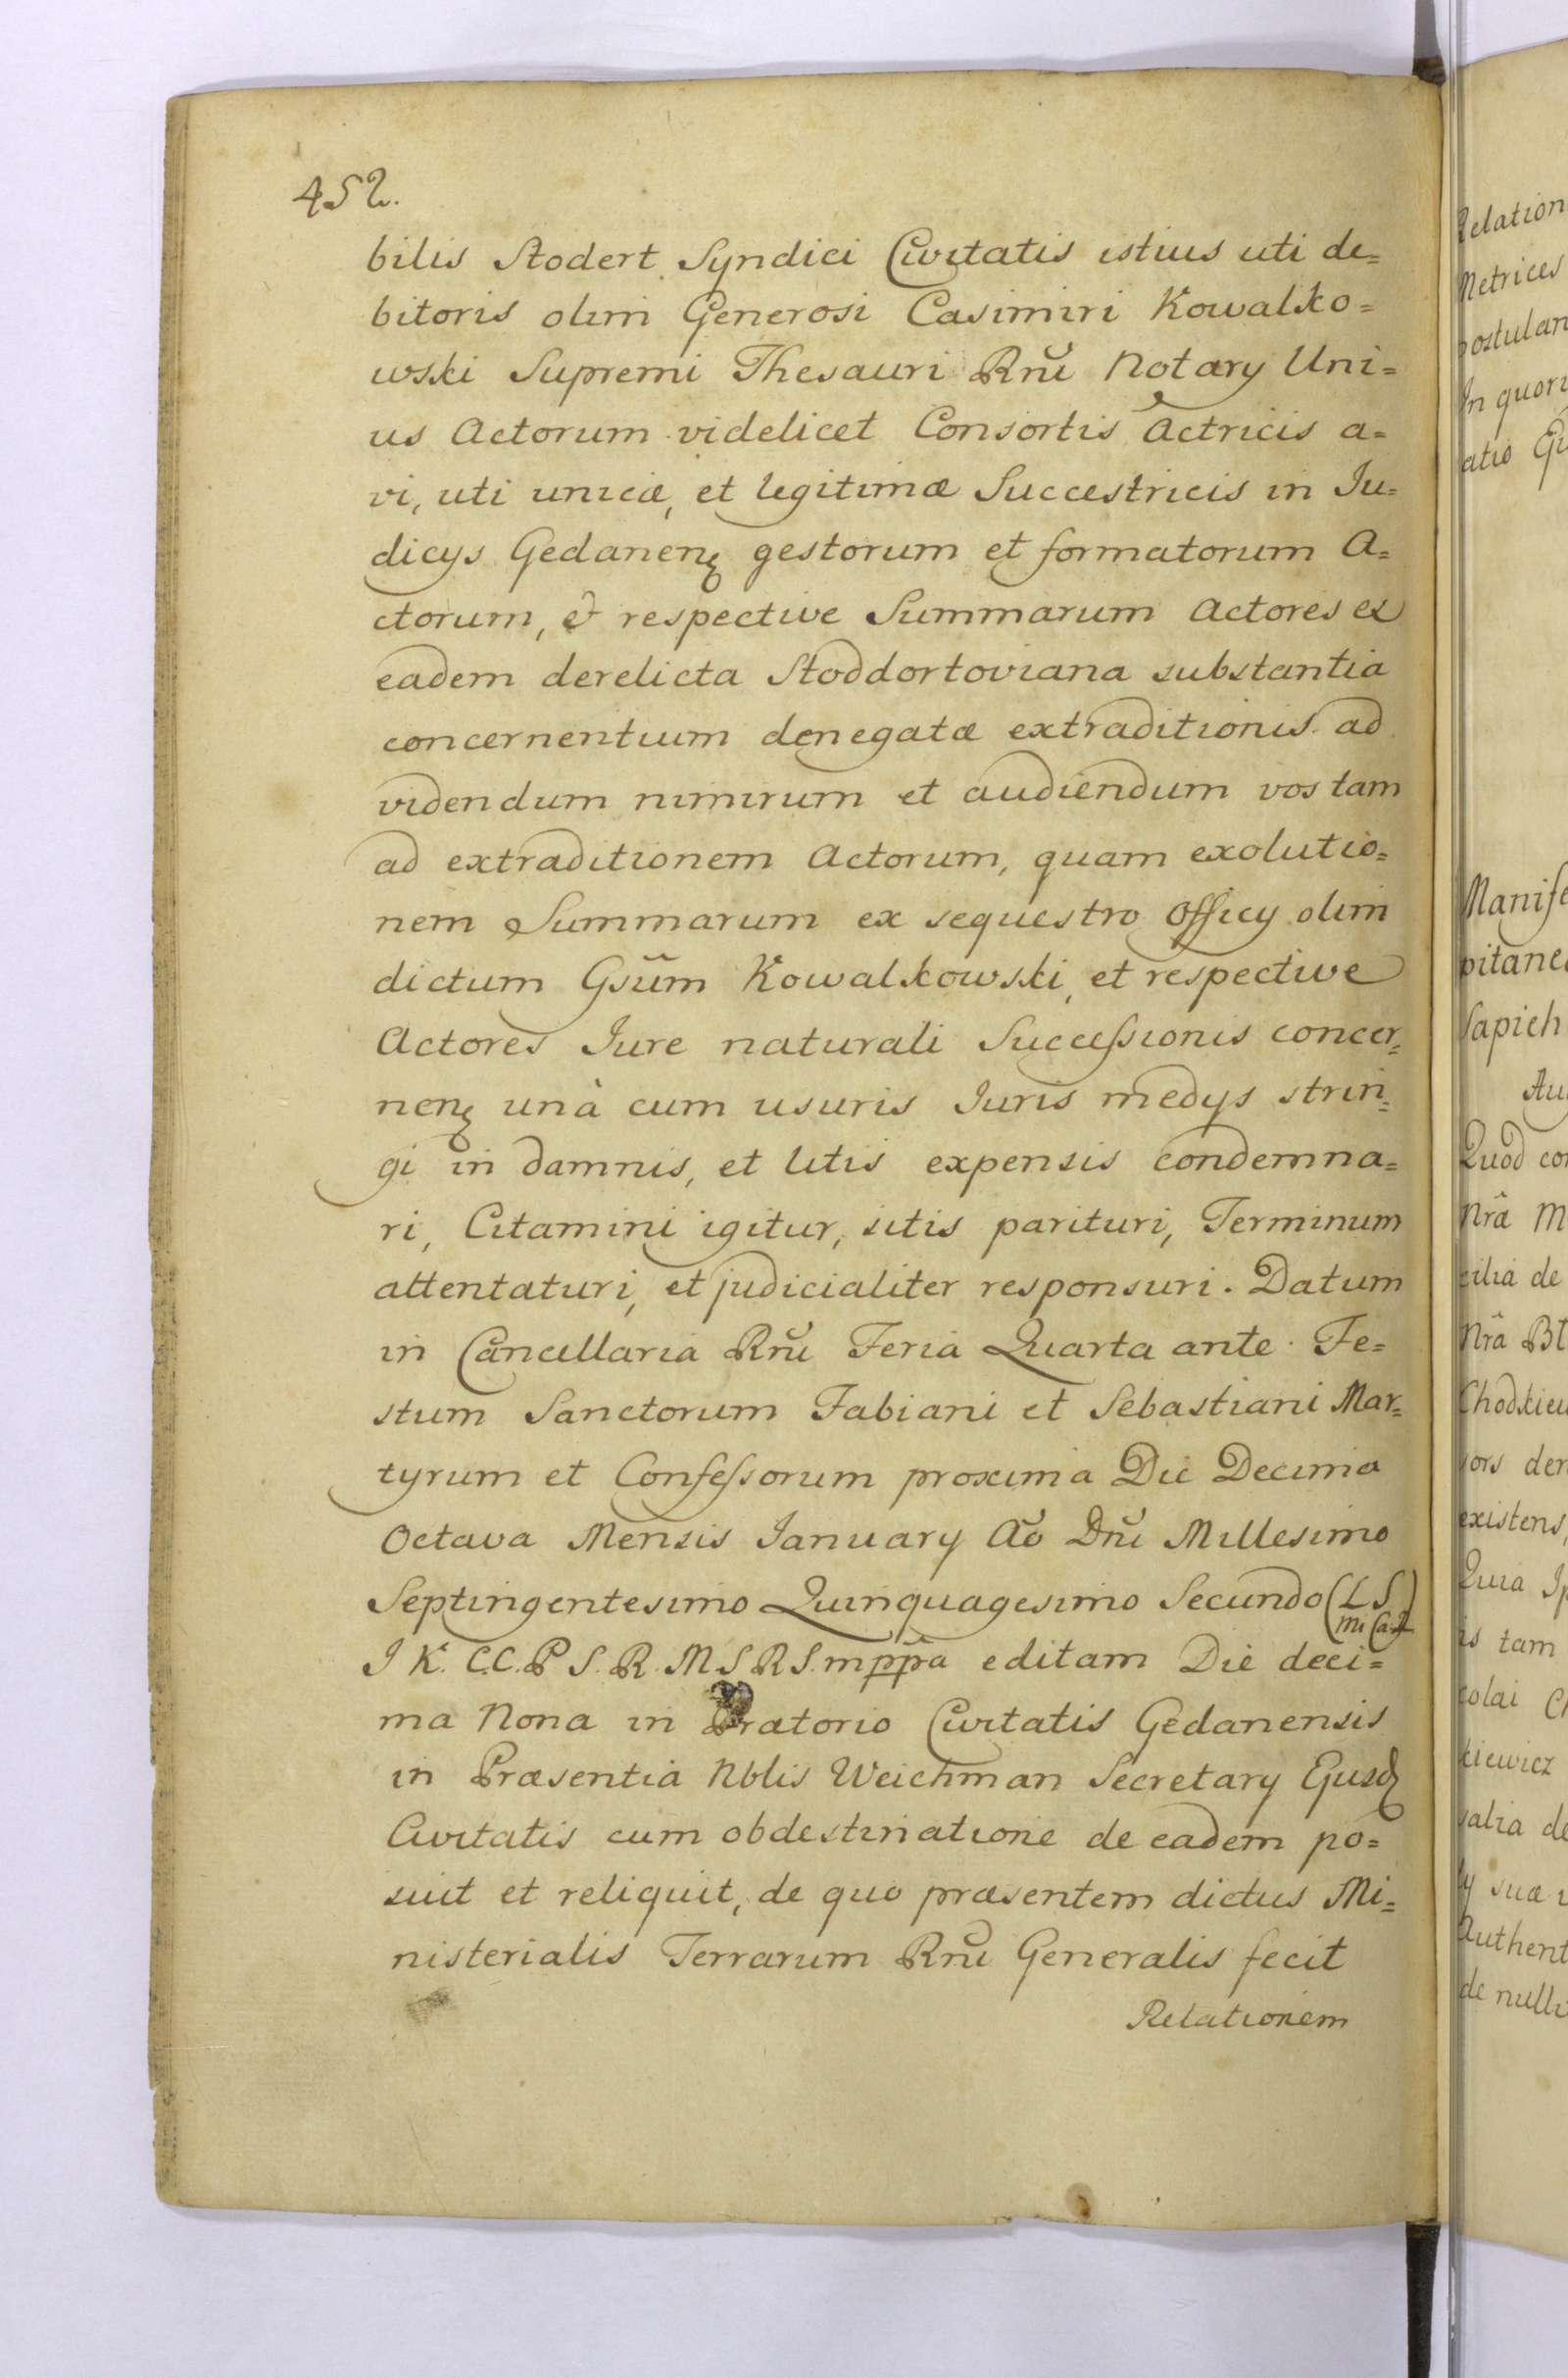 452.
bilis Stodert Syndici Civitatis istius uti de=
bitoris olim Generosi Casimiri Kowalko=
wski Supremi Thesauri Rnŭ Notary Uni=
us Actorum videlicet Consortis Actricis a=
vi, uti unicæ, et legitimæ Successtricis in Ju=
dicys Gedanenȝ gestorum et formatorum A=
ctorum, & respective Summarum Actores ex
eadem derelicta Stoddortoviana substantia
concernentium denegatæ extraditionis ad
videndum nimirum et audiendum vos tam
ad extraditionem Actorum, quam exolutio=
nem Summarum ex sequestro Officy olim
dictum Gsũm Kowalkowski, et respective
Actores Jure naturali Successionis concer=
nenȝ unà cum usuris Juris medys strin=
gi in damnis, et litis expensis condemna=
ri, Citamini igitur, sitis parituri, Terminum
attentaturi, et judicialiter responsuri. Datum
in Cancellaria Rnŭ Feria Quarta ante Fe=
stum Sanctorum Fabiani et Sebastiani Mar=
tyrum et Confessorum proxima Die Decima
Octava Mensis January Aŏ Dnĭ Millesimo
Septingentesimo Quinquagesimo Secundo (L S)
J K. C.C. P S. R. M S R S. mppãa editam Die deci=
ma Nona in Prætorio Civitatis Gedanensis
in Præsentia Nblis Weichman Secretary Ejusdȝ
Civitatis cum obdestinatione de eadem po=
suit et reliquit, de quo præsentem dictus Mi=
nisterialis Terrarum Rnŭ Generalis fecit
Relationem
Relation
Metrices
postulan
In quoru
atio
Manife
pitane
Sapieh
Au
Quod con
Nrâ M
cilia de
Nrâ
Chodkiew
der
existens,
Quia Ip
is tam
colai Ch
kiewicz
salia de
suæ
Authent
de nulli